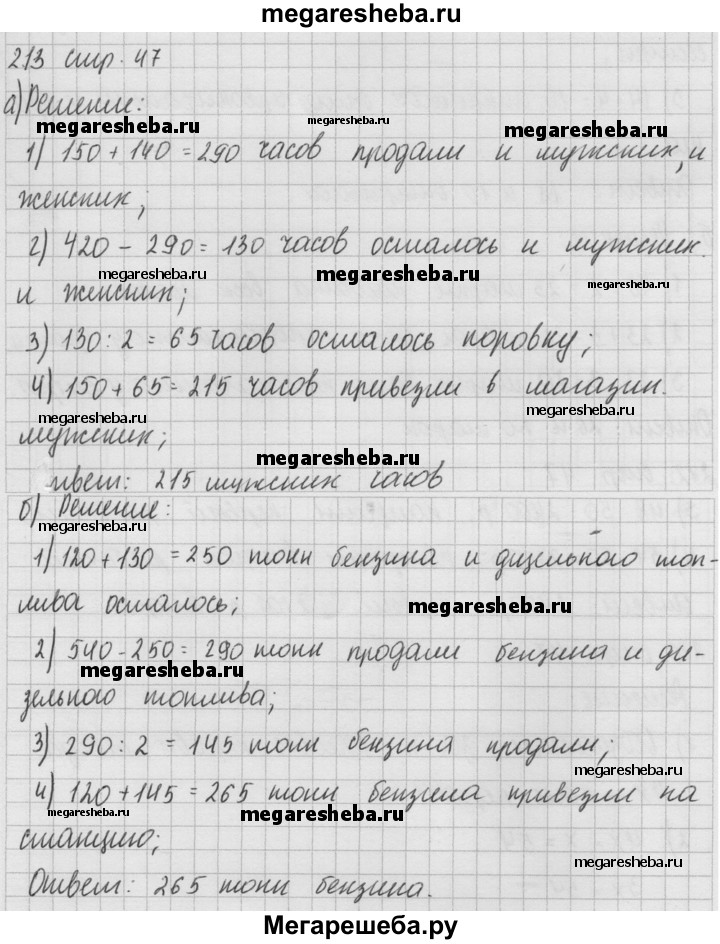 megaresheba.ru
213 стр. 47
а) Решение:
megaresheba.ru megaresheba.ru megaresheba.ru
1) 150 + 140 = 290 часов продали и мужских, и
женских;
2) 420 - 290 = 130 часов осталось и мужских.
megaresheba.ru megaresheba.ru megaresheba.ru
и женских;
3) 130 : 2 = 65 часов осталось поровну;
4) 150 + 65 = 215 часов привезли в магазин.
megaresheba.ru megaresheba.ru
мужских;
megaresheba.ru
Ответ: 215 мужских часов
б) Решение:
megaresheba.ru
1) 120 + 130 = 250 тонн бензина и дизельного топ-
лива осталось;
megaresheba.ru
2) 540 - 250 = 290 тонн продали бензина и ди-
megaresheba.ru
зельного топлива;
3) 290 : 2 = 145 тонн бензина продали;
megaresheba.ru
4) 120 + 145 = 265 тонн бензина привезли на
megaresheba.ru megaresheba.ru
станцию;
megaresheba.ru
Ответ: 265 тонн бензина.
Мегарешеба.ру